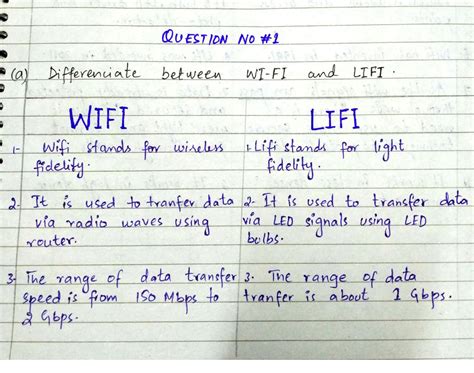 QUESTION NO #1
(a) Differenciate between WI-FI and LIFI.
WIFI
1- Wifi stands for wireless
fidelity.
2- It is used to tranfer data
via radio waves using
router.
3- The range of data transfer
speed is from 150 Mbps to
2 Gbps.
LIFI
1. Lifi stands for light
fidelity.
2- It is used to transfer data
via LED signals using LED
bulbs.
3. The range of data
tranfer is about 1 Gbps.